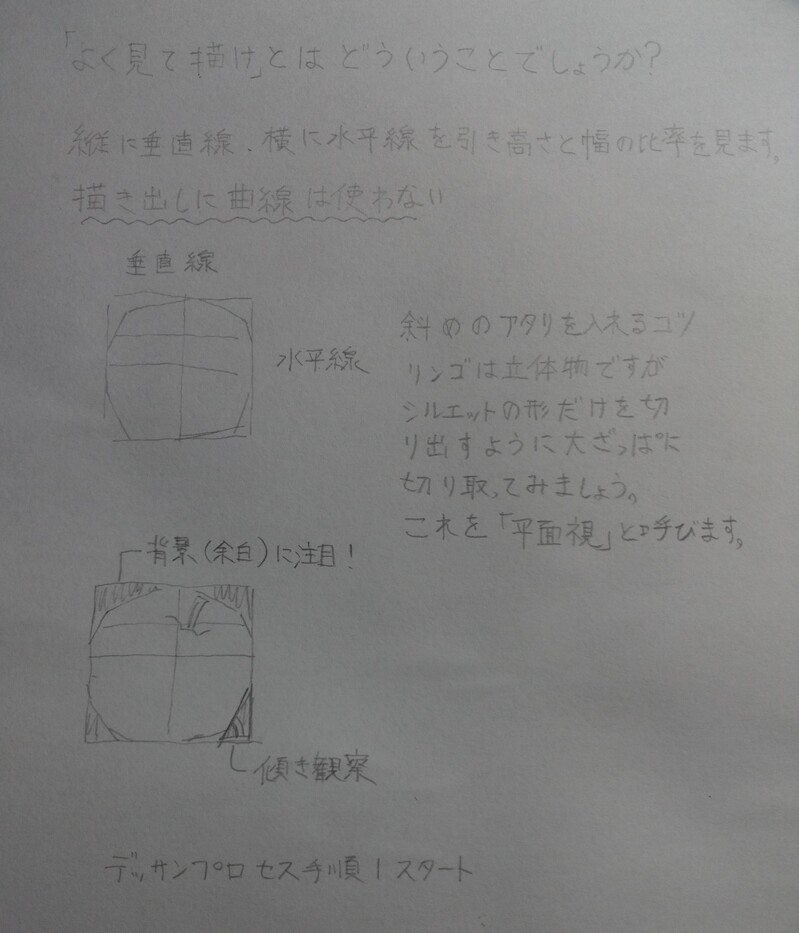 「よく見て描け」とはどういうことでしょうか?
縦に垂直線、横に水平線を引き高さと幅の比率を見ます。
描き出しに曲線は使わない
垂直線
水平線
斜めのアタリを入れるコツ
リンゴは立体物ですが
シルエットの形だけを切
り出すように大ざっぱに
切り取ってみましょう。
これを「平面視」と呼びます。
背景(余白)に注目!
傾き観察
デッサンプロセス手順1スタート